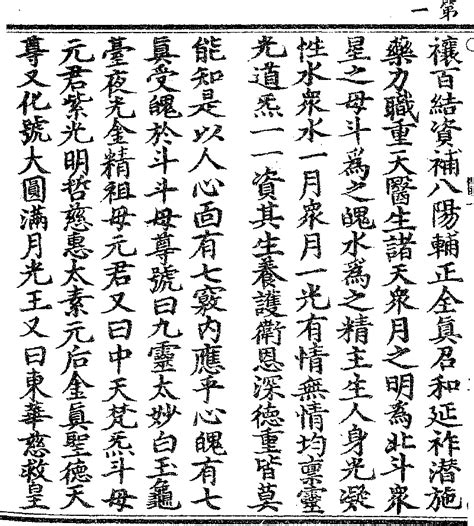 第一
禳百結資補八陽輔正全眞召和延祚潛施
藥力職重天醫生諸天衆月之明爲北斗衆
星之母斗爲之魄水爲之精主生人身光凝
性水衆水一月衆月一光有情無情均禀靈
光道炁一一資其生養護衛恩深德重皆莫
能知是以人心面有七竅内應乎心魄有七
眞受魄於斗斗母尊號曰九靈太妙白玉龜
臺夜光金精祖母元君又曰中天梵炁斗母
元君紫光明哲慈惠太素元后金眞聖德天
尊又化號大圓滿月光王又曰東華慈救皇